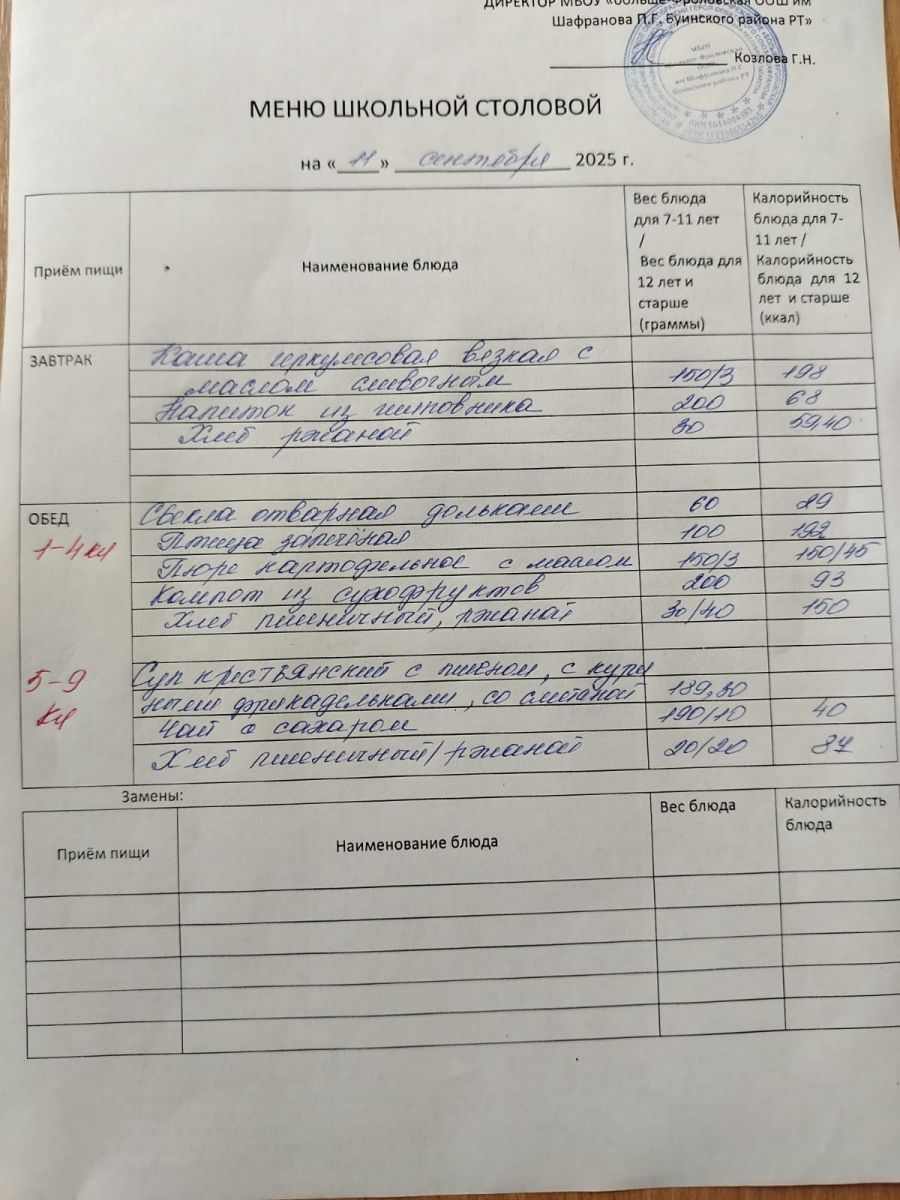 ДИРЕКТОР МБОУ «Больше-Фроловская ООШ им
Шафранова П.Г. Буинского района РТ»
Козлова Г.Н.
МБОУ
ООШ
им Шафранова П.Г.
Буинского района РТ
МЕНЮ ШКОЛЬНОЙ СТОЛОВОЙ
на « 11 » сентября 2025 г.
Приём пищи
Наименование блюда
Вес блюда
для 7-11 лет
/
Вес блюда для
12 лет и
старше
(граммы)
Калорийность
блюда для 7-
11 лет /
Калорийность
блюда для 12
лет и старше
(ккал)
ЗАВТРАК
Каша геркулесовая вязкая с
маслом сливочным 150/3 198
Напиток из шиповника 200 68
Хлеб ржаной 30 59,40
ОБЕД
1-4 кл
Свекла отварная дольками 60 29
Птица запечёная 100 192
Пюре картофельное с маслом 150/3 150/45
Компот из сухофруктов 200 93
Хлеб пшеничный, ржаной 30/40 150
5-9
кл
Суп крестьянский с пшеном, с кури
ными фрикадельками, со сметаной 189,30
Чай с сахаром 190/10 40
Хлеб пшеничный/ржаной 20/20 87
Замены:
Приём пищи
Наименование блюда
Вес блюда
Калорийность
блюда